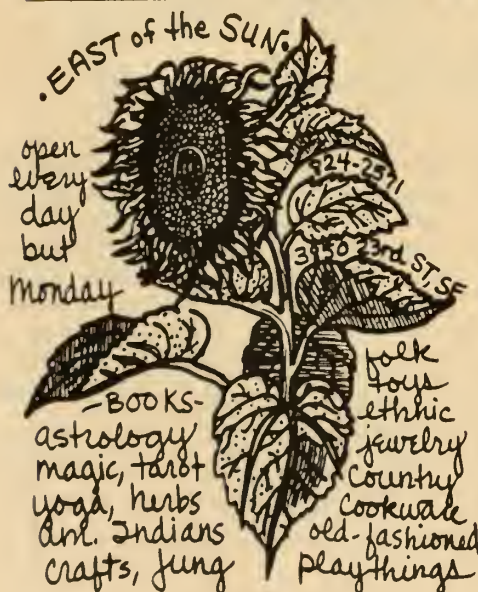 •EAST of the SUN•
open
every
day
but
Monday
924-2571
3850 23rd ST, SF
-BOOKS-
astrology
magic, tarot
yoga, herbs
am. Indians
crafts, Jung
folk
toys
ethnic
jewelry
country
cookware
old-fashioned
playthings